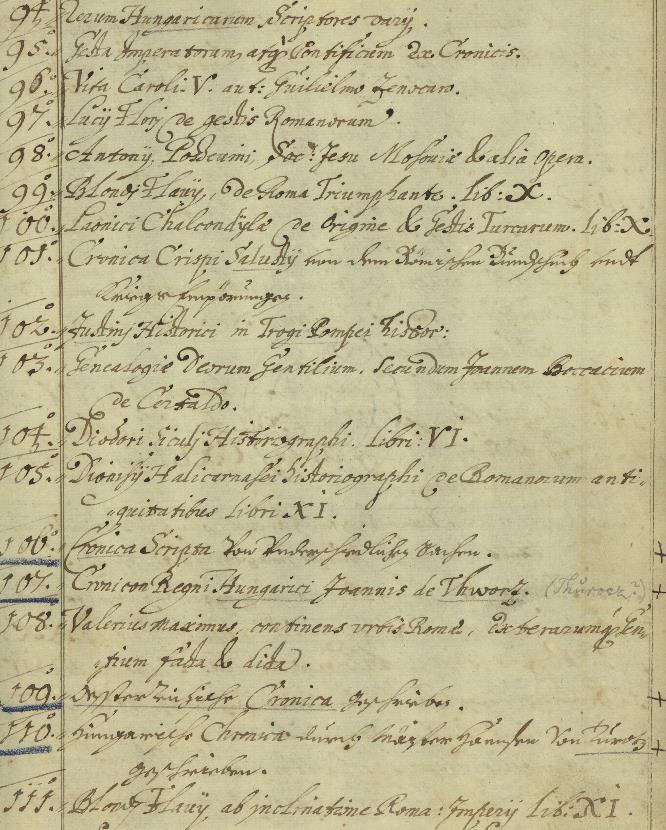 94. Rerum Hungaricarum Scriptores varij.
95. Gesta Imperatorum, atq Pontificum Ex Cronicis.
96. Vita Caroli V. aut: Guilielmo Zenocaro.
97. Lucij Florj de gestis Romanorum.
98. Antonij, Possevini, Soc: Jesu Moscovia & alia opera.
99. Blondj Flavij, De Roma Triumphante. lib: X.
100. Laonici Chalcondylæ de Origine & Gestis Turcarum. lib: X
101. Cronica Crispi Salustij von dem Römischen Bundschuh undt
Kriegs Empörungen.
102. Justinj Historici in Trogi Pompei histor:
103. Genealogiæ Deorum Gentilium. Secundum Joannem Boccacium
de Certaldo.
104. Diodori Siculj Historiographi. libri: VI.
105. Dionisij Halicarnasei historiographi de Romanorum anti-
quitatibus libri XI.
106. Cronica Scripta von Underschidlichen Sachen.
107. Cronicon Regni Hungarici Joannis de Thwocz. (Thurocz?)
108. Valerius maximus, continens urbis Romæ, Exterarumq Gen-
tium facta & dicta.
109. Oesterreichische Cronica geschrieben.
110. Hungarische Chronica durch Maister Hannsen von Turotz
geschrieben.
111. Blondj Flavij ab inclinatione Roma: Imperij lib: XI.